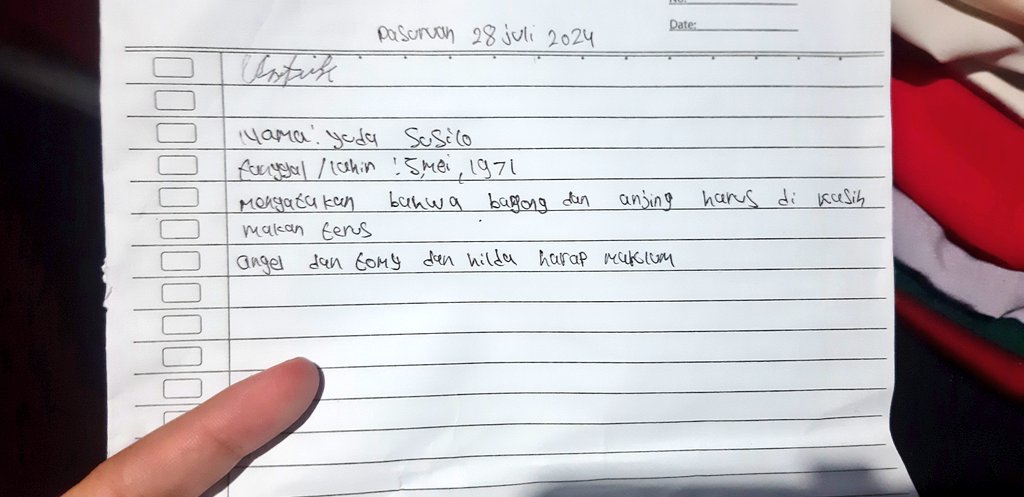 No:
Date:
Pasuruan 28 juli 2024
Nama: yuda Susilo
tanggal/lahir : 5, mei, 1971
mengatakan bahwa bagong dan anjing harus di kasih
makan terus
angel dan tomy dan hilda harap maklum